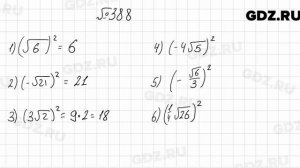 №388
GDZ.RU
1) (√6)² = 6
2) (-√21)² = 21
3) (3√2)² = 9·2 = 18
4) (-4√5)²
5) (-√6/3)²
6) (1/4 √26)²
GDZ.RU